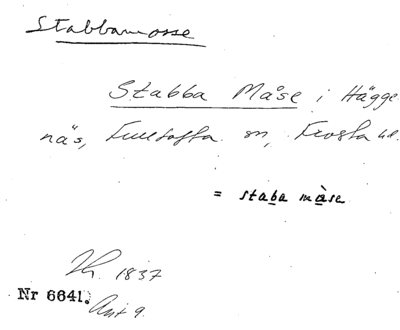 Stabbamosse
Stabba Måse i Hägge
näs, Fulltofta sn, Frosta hd.
= staba måse
1837
Nr 6641.